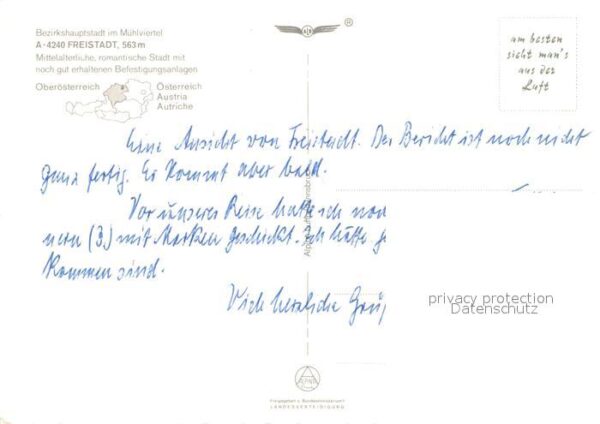 Bezirkshauptstadt im Mühlviertel
A-4240 FREISTADT, 563 m
Mittelalterliche, romantische Stadt mit
noch gut erhaltenen Befestigungsanlagen
Oberösterreich
Österreich
Austria
Autriche
®
am besten
sieht man's
aus der
Luft
Eine Ansicht von Freistadt. Der Bericht ist noch nicht
ganz fertig. Er kommt aber bald.
Vor unserer Reise hatte ich
nern (3.) mit Marken geschickt. Ich hätte
kommen sind.
Viele herzliche Grüß
privacy protection
Datenschutz
Freigegeben v. Bundesministerium f.
LANDESVERTEIDIGUNG